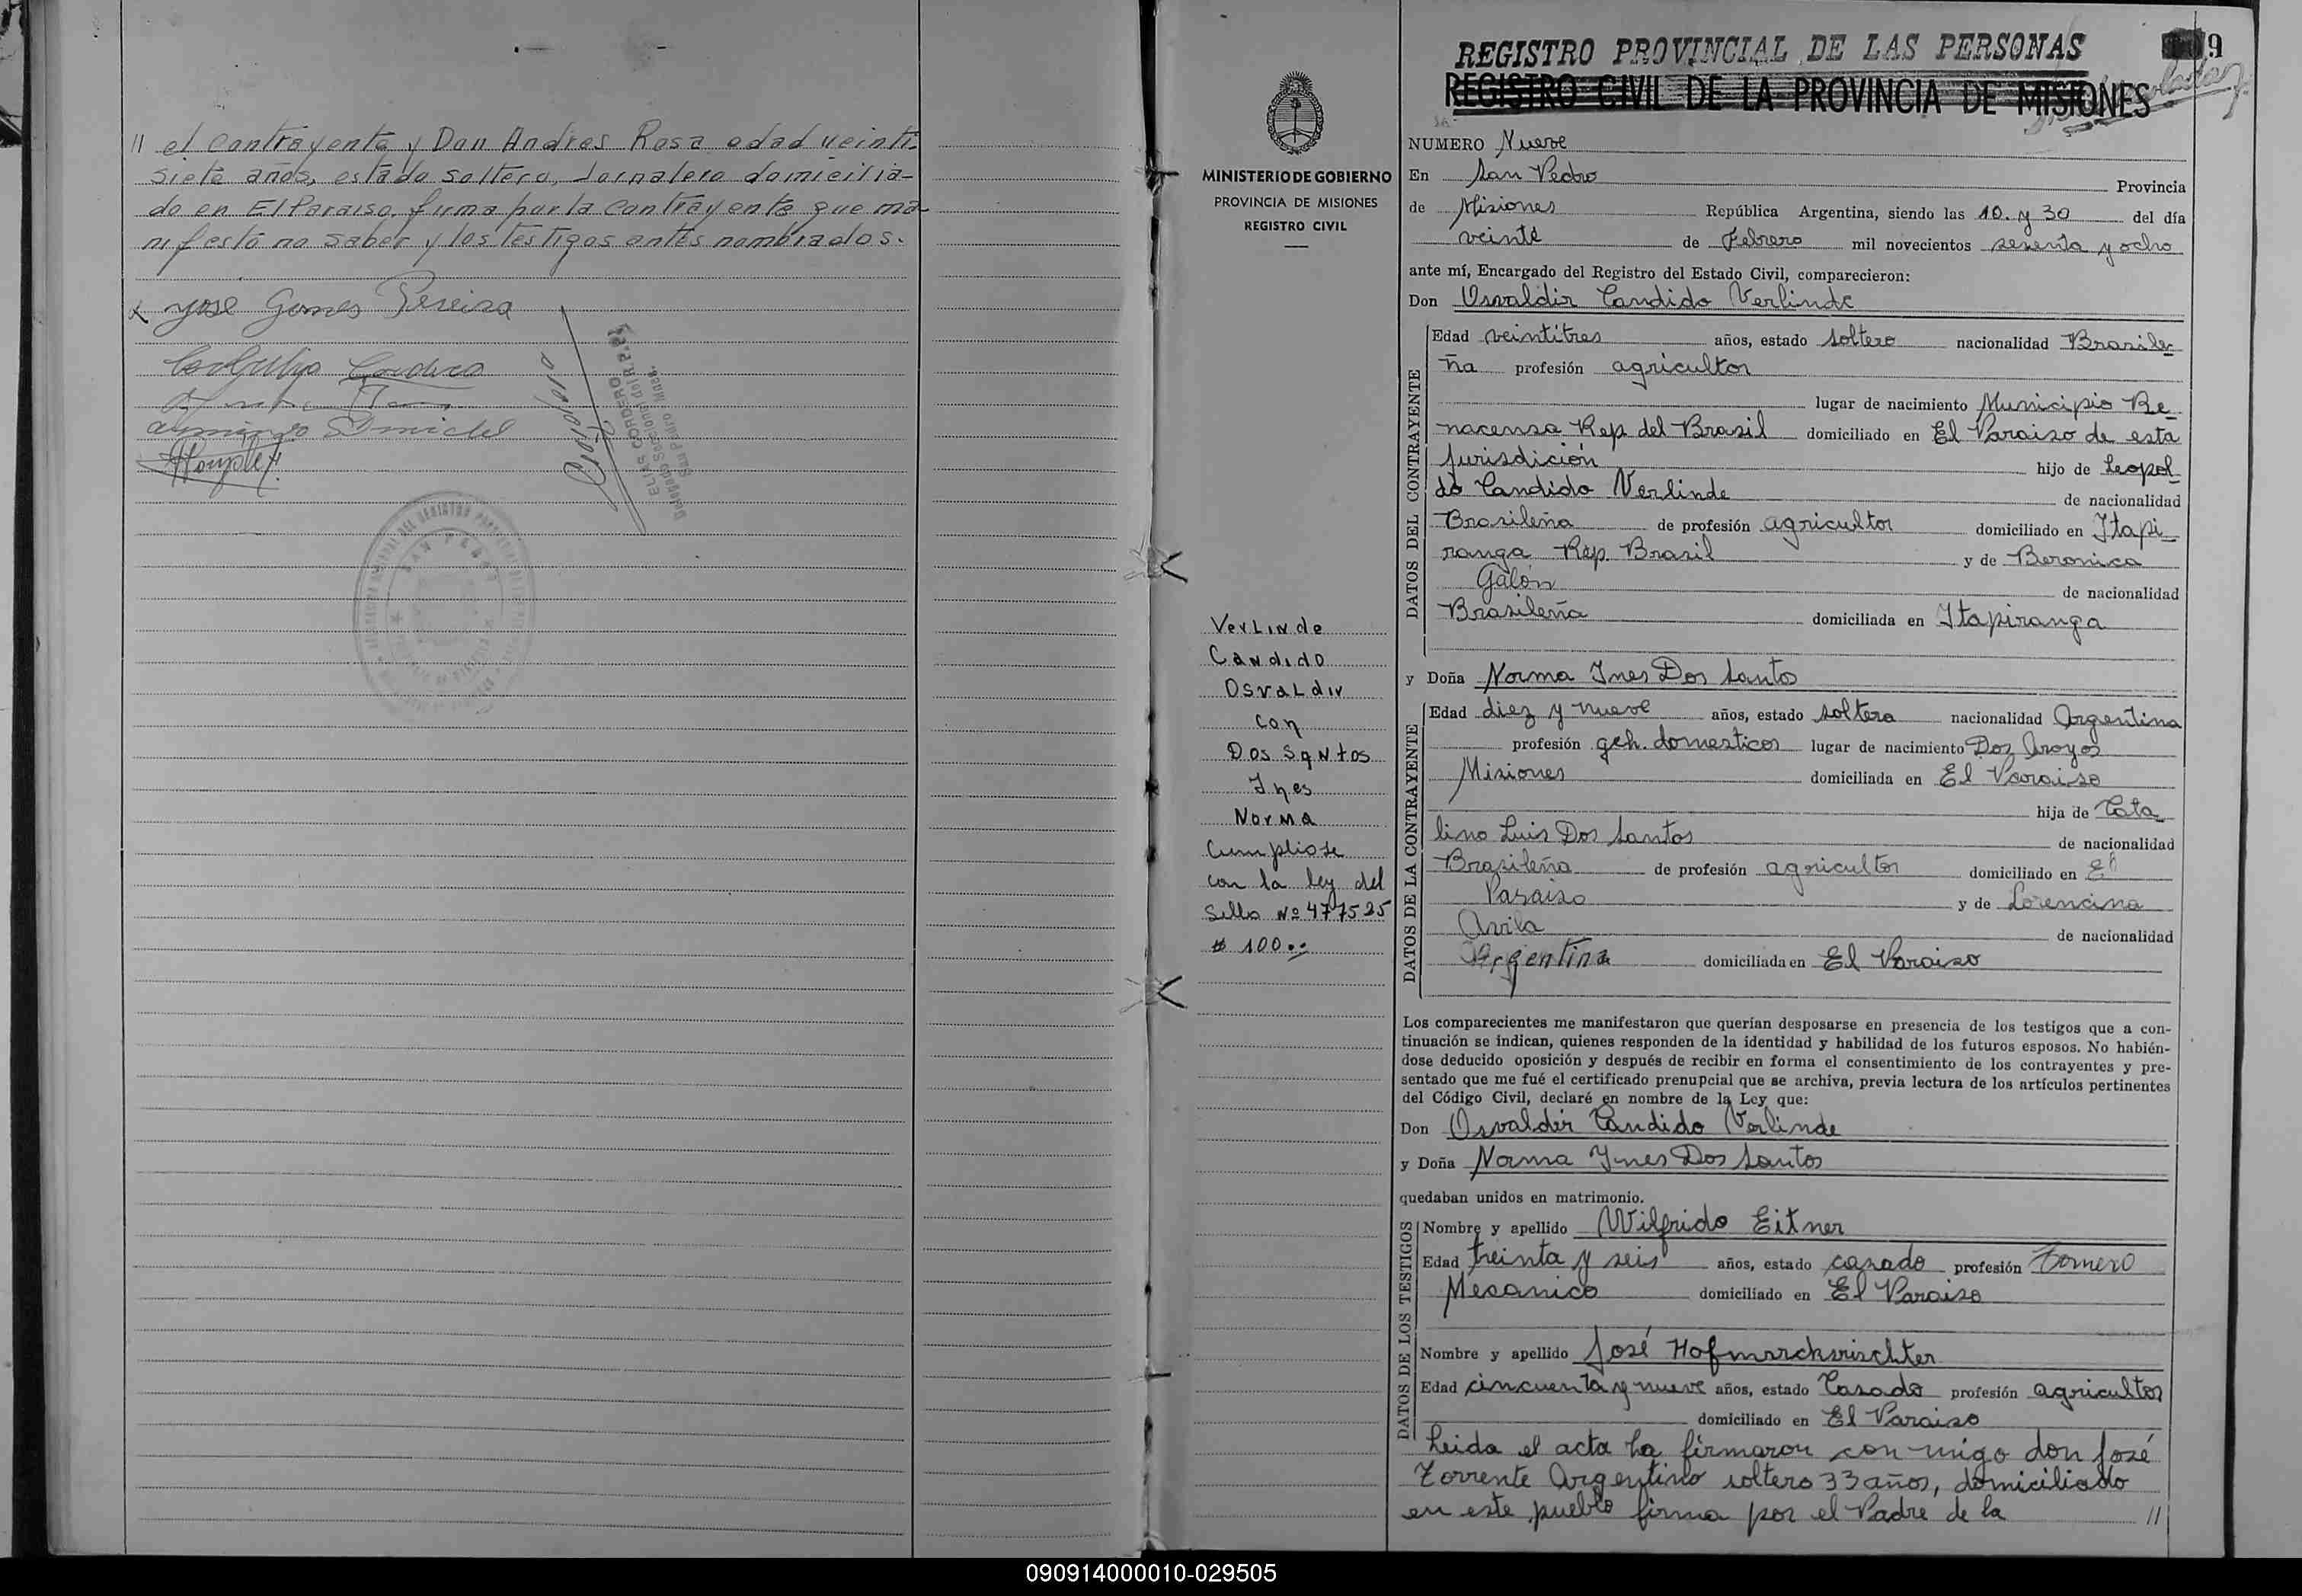 // el contrayente y Don Andres Rosa edad veinti-
siete años, estado soltero, Jornalero domicilia-
do en El Paraiso, firma por la contrayente que ma-
nifestó no saber y los testigos antes nombrados.
José Gomes Pereira
Cordero
ELIAS CORDERO
San Pedro Mnes.
SAN PEDRO
REGISTRO PROVINCIAL DE LAS PERSONAS
9
REGISTRO CIVIL DE LA PROVINCIA DE MISIONES
MINISTERIO DE GOBIERNO
PROVINCIA DE MISIONES
REGISTRO CIVIL
Verlinde
Candido
Osvaldir
con
Dos Santos
Ynes
Norma
Cumpliose
con la ley del
Sello Nº 477525
$ 100.=
NUMERO Nueve
En San Pedro Provincia
de Misiones República Argentina, siendo las 10. y 30 del día
veinte de Febrero mil novecientos sesenta y ocho
ante mí, Encargado del Registro del Estado Civil, comparecieron:
Don Osvaldir Candido Verlinde
DATOS DEL CONTRAYENTE
Edad veintitres años, estado soltero nacionalidad Brasile-
ña profesión agricultor
lugar de nacimiento Municipio Re-
nacensa Rep. del Brasil domiciliado en El Paraiso de esta
Jurisdicion hijo de Leopol-
do Candido Verlinde de nacionalidad
Brasileña de profesión agricultor domiciliado en Itapi-
ranga Rep. Brasil y de Beronica
Galón de nacionalidad
Brasileña domiciliada en Itapiranga
y Doña Norma Ines Dos Santos
DATOS DE LA CONTRAYENTE
Edad diez y nueve años, estado soltera nacionalidad Argentina
profesión qch. domesticos lugar de nacimiento Dos Aroyos
Misiones domiciliada en El Paraiso
hija de Cata-
lino Luis Dos Santos de nacionalidad
Brasileña de profesión agricultor domiciliado en El
Paraiso y de Lorencina
Avila de nacionalidad
Argentina domiciliada en El Paraiso
Los comparecientes me manifestaron que querían desposarse en presencia de los testigos que a con-
tinuación se indican, quienes responden de la identidad y habilidad de los futuros esposos. No habién-
dose deducido oposición y después de recibir en forma el consentimiento de los contrayentes y pre-
sentado que me fué el certificado prenupcial que se archiva, previa lectura de los artículos pertinentes
del Código Civil, declaré en nombre de la Ley que:
Don Osvaldir Candido Verlinde
y Doña Norma Ynes Dos Santos
quedaban unidos en matrimonio.
DATOS DE LOS TESTIGOS
Nombre y apellido Wilfrido Eitner
Edad treinta y seis años, estado casado profesión Tornero
Mecanico domiciliado en El Paraiso
Nombre y apellido José Hofmarckrischter
Edad cincuenta y nueve años, estado Casado profesión agricultor
domiciliado en El Paraiso
Leida el acta la firmaron con migo don José
Torrente Argentino soltero 33 años, domiciliado
en este pueblo firma por el Padre de la //
090914000010-029505